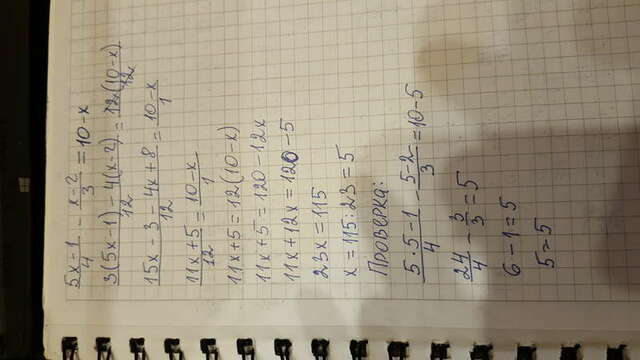 (5x-1)/4 - (x-2)/3 = 10-x
(3(5x-1)-4(x-2))/12 = 12(10-x)/12
(15x-3-4x+8)/12 = (10-x)/1
(11x+5)/12 = (10-x)/1
11x+5=12(10-x)
11x+5=120-12x
11x+12x=120-5
23x=115
x=115:23=5
Проверка:
(5·5-1)/4 - (5-2)/3 = 10-5
24/4 - 3/3 = 5
6-1=5
5=5